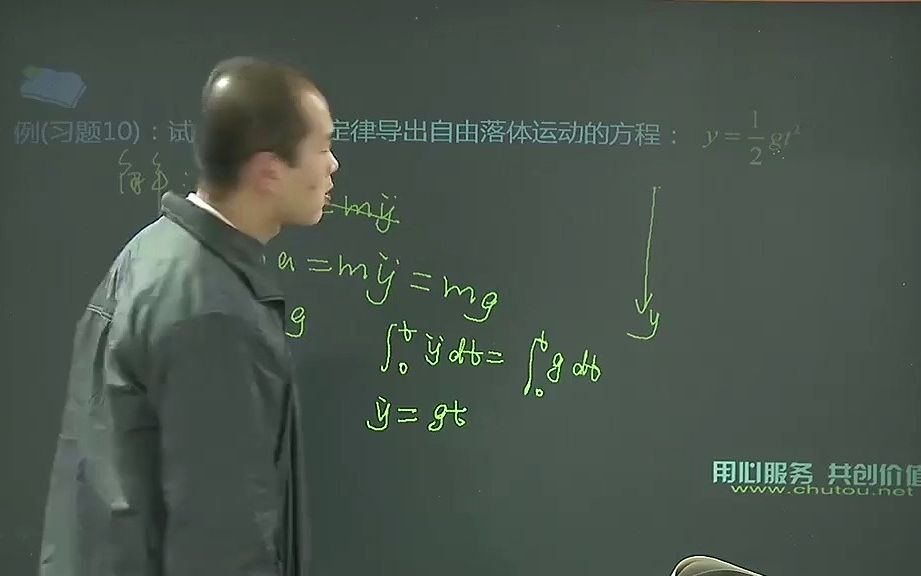 例(习题10)：试 定律导出自由落体运动的方程： y = 1/2 gt²
解：
= mÿ
a = mÿ = mg
g
∫₀ᵗ ÿ dt = ∫₀ᵗ g dt
ẏ = gt
y
用心服务 共创价值
www.chutou.net